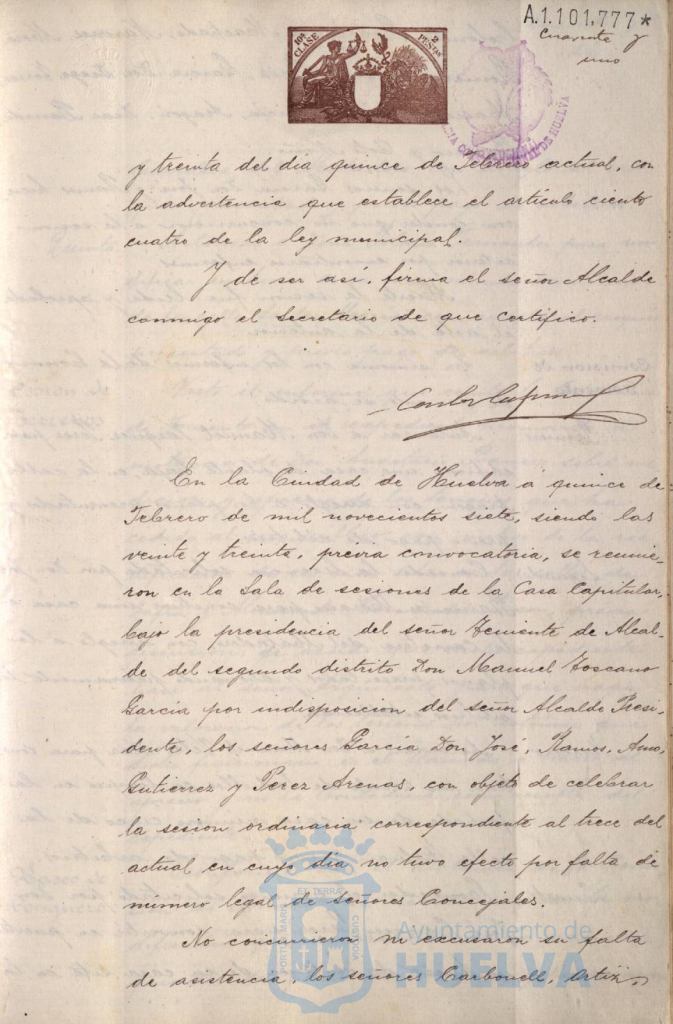 A.1.101,777*
Cuarenta y
uno
10ª CLASE 2 PESETAS
DE HUELVA
y treinta del dia quince de Febrero actual, con
la advertencia que establece el artículo ciento
cuatro de la ley municipal.
Y de ser así, firma el señor Alcalde
conmigo el Secretario de que certifico.
En la Ciudad de Huelva á quince de
Febrero de mil novecientos siete, siendo las
veinte y treinta, previa convocatoria, se reunie-
ron en la Sala de sesiones de la Casa Capitular,
bajo la presidencia del señor Teniente de Alcal-
de del segundo distrito Don Manuel Toscano
García por indisposicion del señor Alcalde Presi-
dente, los señores García Don José, Ramos, Amo,
Gutierrez y Perez Arenas, con objeto de celebrar
la sesion ordinaria correspondiente al trece del
actual en cuyo dia no tuvo efecto por falta de
número legal de señores Concejales.
No concurrieron ni excusaron su falta
de asistencia, los señores Carbonell, Ortiz,
PORTUS MARIS ET TERRÆ CUSTODIA
Ayuntamiento de
HUELVA